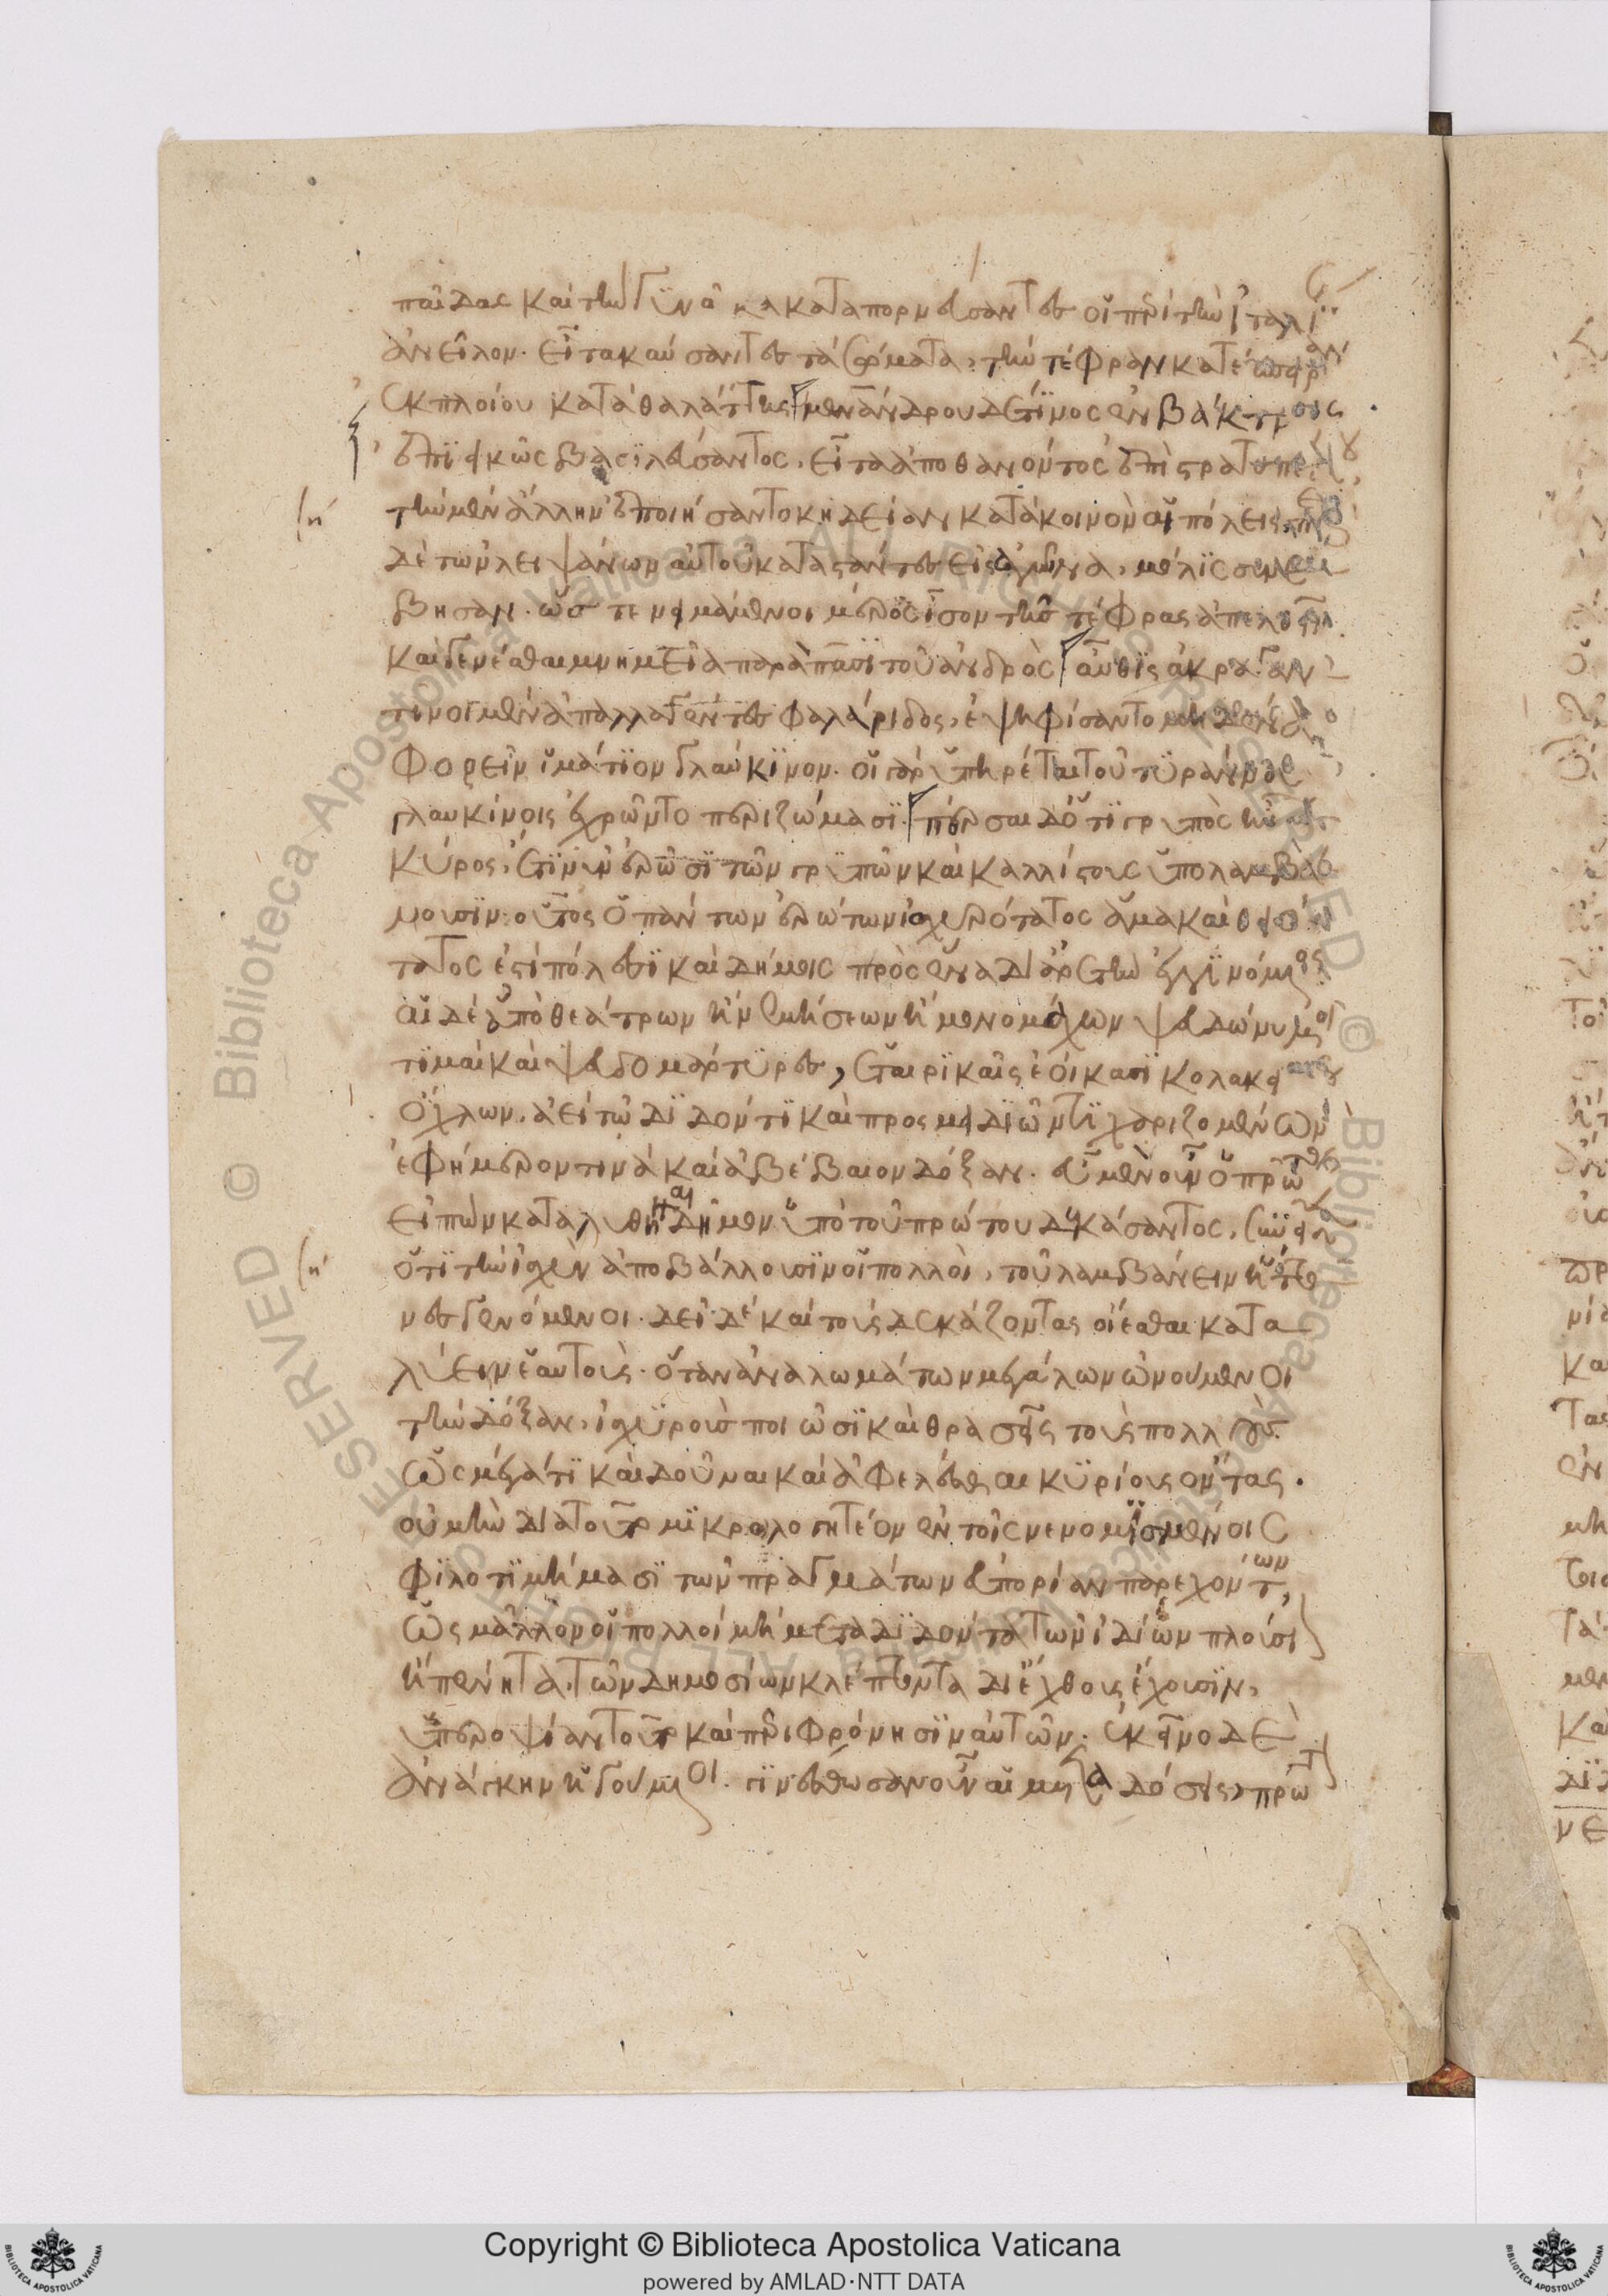 παῖδας καὶ τὴν γϋναῖκα καταπορνεύσαντες οἵ περὶ τὴν ἰταλίαν
ἀνεῖλον. εἶτα καύσαντες τὰ σώματα, τὴν τέφραν κατέσπειρ
ἐκ πλοίου κατὰ θαλάττης μενάνδρου δέ τϊνος ἐν βάκτροις
ἐπιεικῶς βασϊλεύσαντος. εἶτα ἀποθανόντος ἐπὶ στρατοπέδου
τὴν μὲν ἄλλην ἐποιήσαντο κηδείαν κατὰ κοινὸν αἵ πόλεις, περὶ
δὲ τῶν λειψάνων αὐτοῦ καταστάντες εἰς ἀγῶνα, μόλϊς συνέ
βησαν. ὥστε νειμάμενοι μέρος ἴσον τῆς τέφρας ἀπελθεῖν
καὶ γενέσθαι μνημεῖα παρὰ πᾶσϊ τοῦ ἀνδρὸς αὖθϊς ἀκραγαν
τῖνοι μὲν ἀπαλλαγέντες φαλάριδος, ἐψηφίσαντο μηδένα
φορεῖν ἵμάτϊον γλαύκϊνον. οἵ γὰρ ὕπηρέται τοῦ τϋράννου
γλαυκίνοις ἐχρῶντο περιζώμασϊ. πέρσαι δὲ ὅτϊ γρυπὸς ἦν
κύρος, ἔτϊ νῦν ἐρῶσϊ τῶν γρϋπῶν καὶ καλλίστους ὕπολαμβά
νουσϊν. οὕτος ὅ πάντων ἐρώτων ἰσχυρότατος ἅμα καὶ θειό
τατος ἐστὶ πόλεσϊ καὶ δήμοις πρὸς ἕνα δι᾽ ἀρετὴν ἐγγϊνόμενος
αἵ δὲ ἀπὸ θεάτρων ἢ νεμήσεων ἢ μονομάχων ψευδώνυμοι
τϊμαὶ καὶ ψευδομάρτϋρες, ἑταιρϊκαῖς ἐοίκασϊ κολακείαις
ὄχλων. ἀεὶ τῷ δϊδόντϊ καὶ προσμειδϊῶντϊ χαριζομένων
ἐφήμερόν τινα καὶ ἀβέβαιον δόξαν. εὖ μὲν οὖν ὅ πρῶτος
εἰπὼν καταλυθῆναι δῆμον ὕπὸ τοῦ πρώτου δεκάσαντος,
ὅτϊ τὴν ἰσχὺν ἀποβάλλουσϊν οἵ πολλοὶ, τοῦ λαμβάνειν ἥττο
νες γενόμενοι. δεῖ δὲ καὶ τοὺς δεκάζοντας οἴεσθαι κατα
λύειν ἕαυτοὺς. ὅταν ἀναλωμάτων μεγάλων ὠνούμενοι
τὴν δόξαν, ἰσχϋροὺς ποιῶσϊ καὶ θρασεῖς τοὺς πολλούς.
ὥς μέγα τϊ καὶ δοῦναι καὶ ἀφελέσθαι κϋρίους ὄντας.
οὐ μὴν διὰ τοῦτο μϊκρολογητέον ἐν τοῖς νενομϊσμένοις
φϊλοτϊμήμασϊ τῶν πραγμάτων εὐπορίαν παρεχόντων,
ὥς μᾶλλον οἵ πολλοὶ μὴ μεταδϊδόντα τῶν ἰδίων πλούσιον
ἢ πένητα τῶν δημοσίων κλέπτοντα δι᾽ ἔχθους ἔχουσϊν,
ὕπεροψίαν τοῦτο καὶ περιφρόνησϊν αὐτῶν. ἐκεῖνο δὲ
ἀνάγκην ἡγούμενοι. γϊνέσθωσαν οὖν αἵ μεταδόσεις, πρῶτ